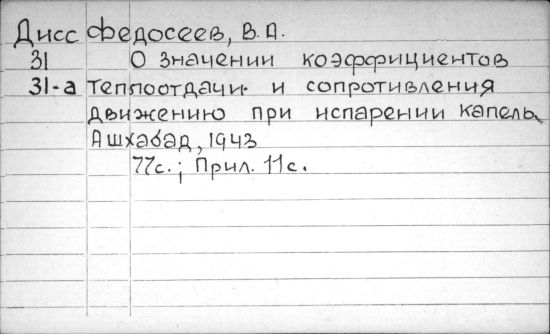 Дисс Федосеев, В.А.
31 О значении коэффициентов
31-а теплоотдачи и сопротивления
движению при испарении капель.
Ашхабад, 1943
77с.; Прил. 11с.